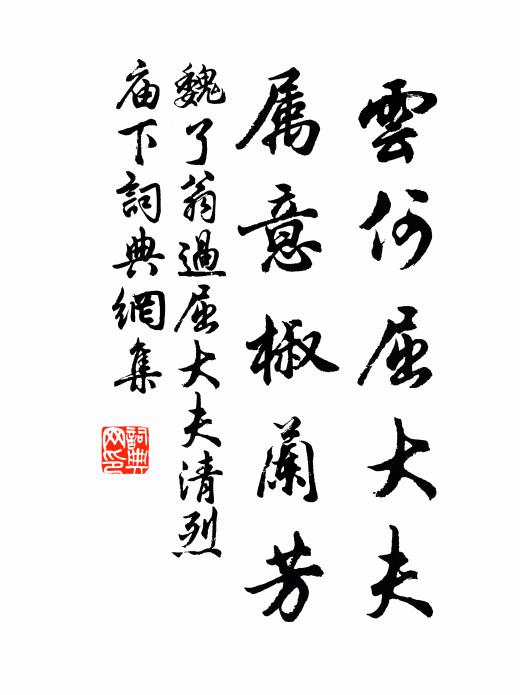 雲何屈大夫
属意椒蘭芳
魏了翁過屈大夫清烈
庙下詞典網集
詞典网印